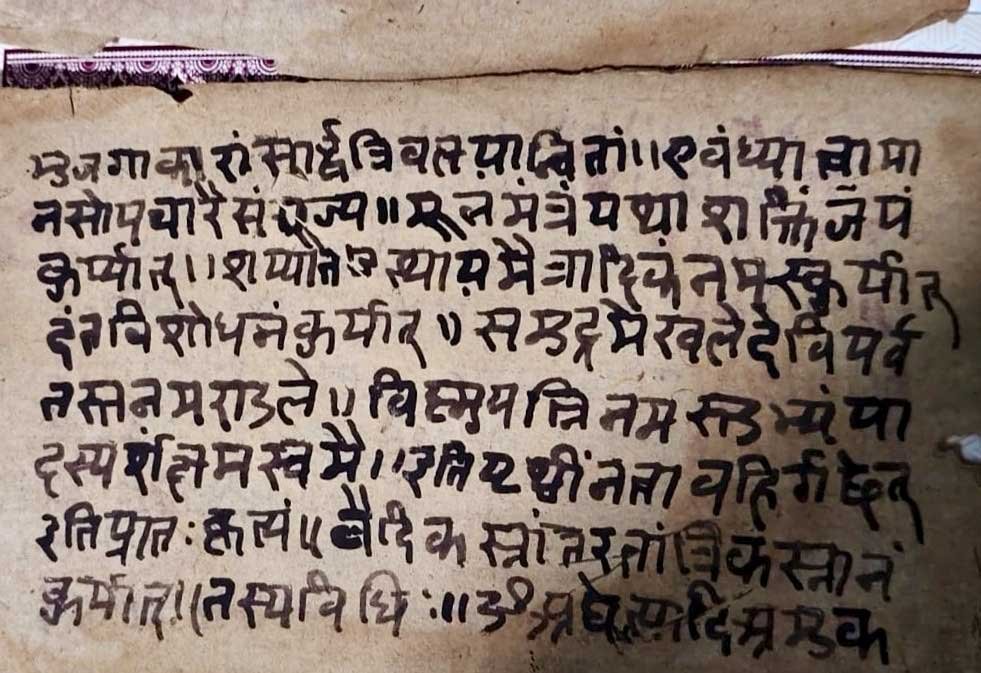 भुजगाकारां सार्द्धत्रिवलयान्वितां।। एवंध्यात्वा मा
नसोपचारैसंपूज्य॥ मूलमंत्रं यथाशक्तिं जपं
कुर्य्यात्।। शय्योत उ स्थाय मैत्रादिकं नमस्कुर्यात्
दंतविशोधनंकुर्यात्॥ समुद्रमेखलेदेविपर्व
तस्तनमराडले॥ विष्णुपत्निनमस्तुभ्यंपा
दस्पर्शक्षमस्वमे।। इतिपृथ्वींनत्वावहिर्गछेत्
इतिप्रातः कृत्यं॥ वैदिकस्नांतरतांत्रिकंस्नानं
कुर्यात्।। तस्यविधिः॥ ॐ अद्येत्यादिअमुक